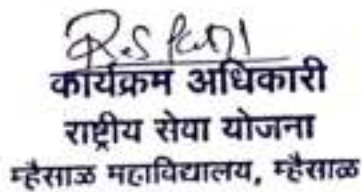 कार्यक्रम अधिकारी
राष्ट्रीय सेवा योजना
म्हैसाळ महाविद्यालय, म्हैसाळ